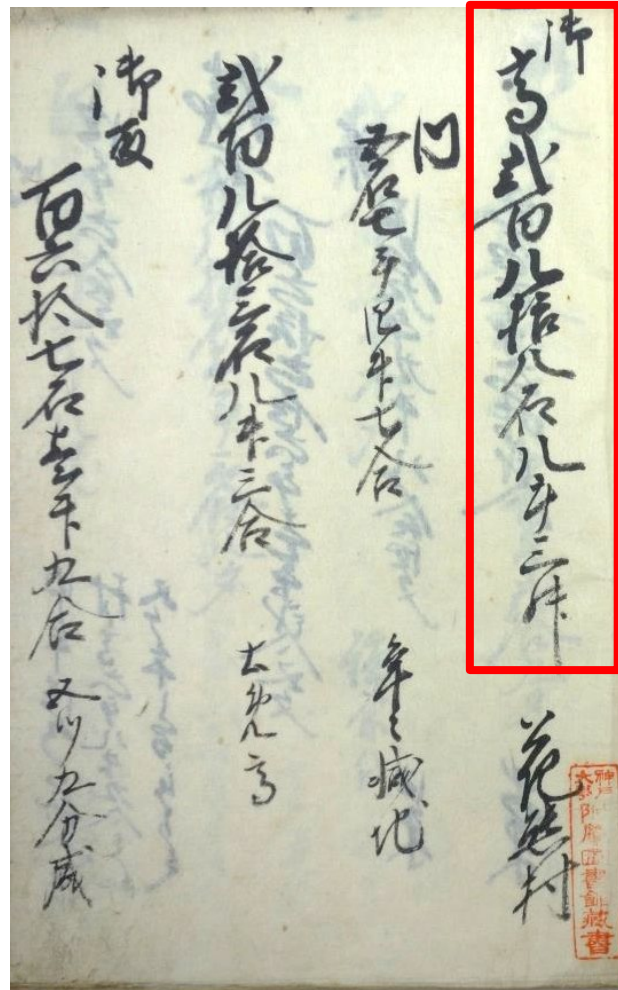 御
高弐百八拾八石八斗三升 花熊村
内
五石七斗四升七合 年々減地
弐百八拾三石八升三合 有免高
御取
百六拾七石壱斗九合 五ツ九分減
神戸
大学附属図書館蔵書